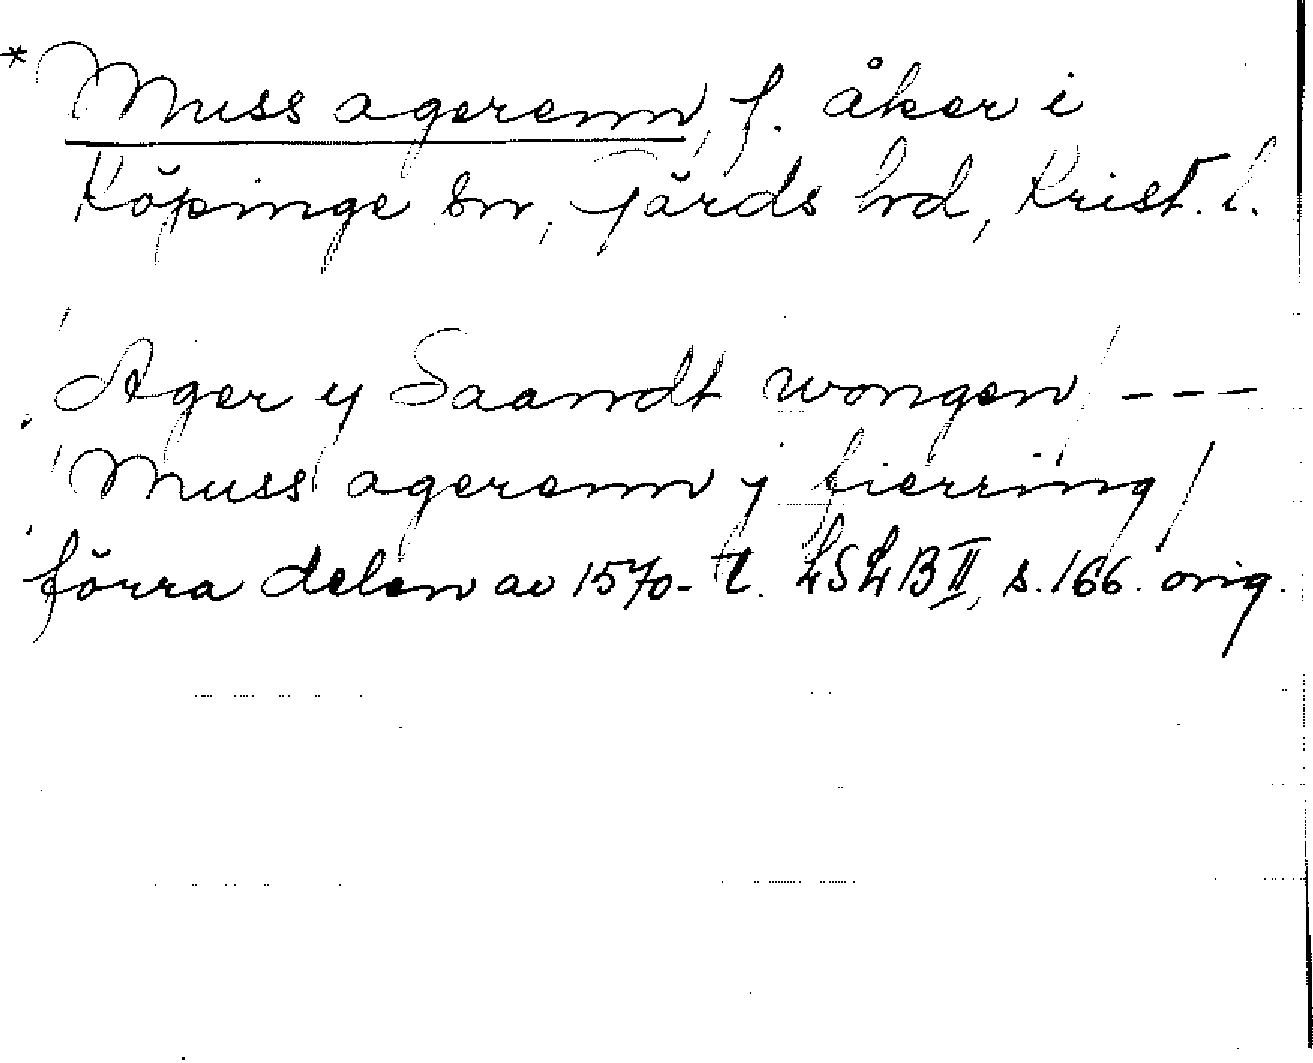 * Muss agerenn, f. åker i
Köpinge sn, Gärds hd, Krist. l.
Ager y Saandt wongen / ---
Muss agerenn j fierring /
förra delen av 1570-t. LSLB II, s. 166. orig.